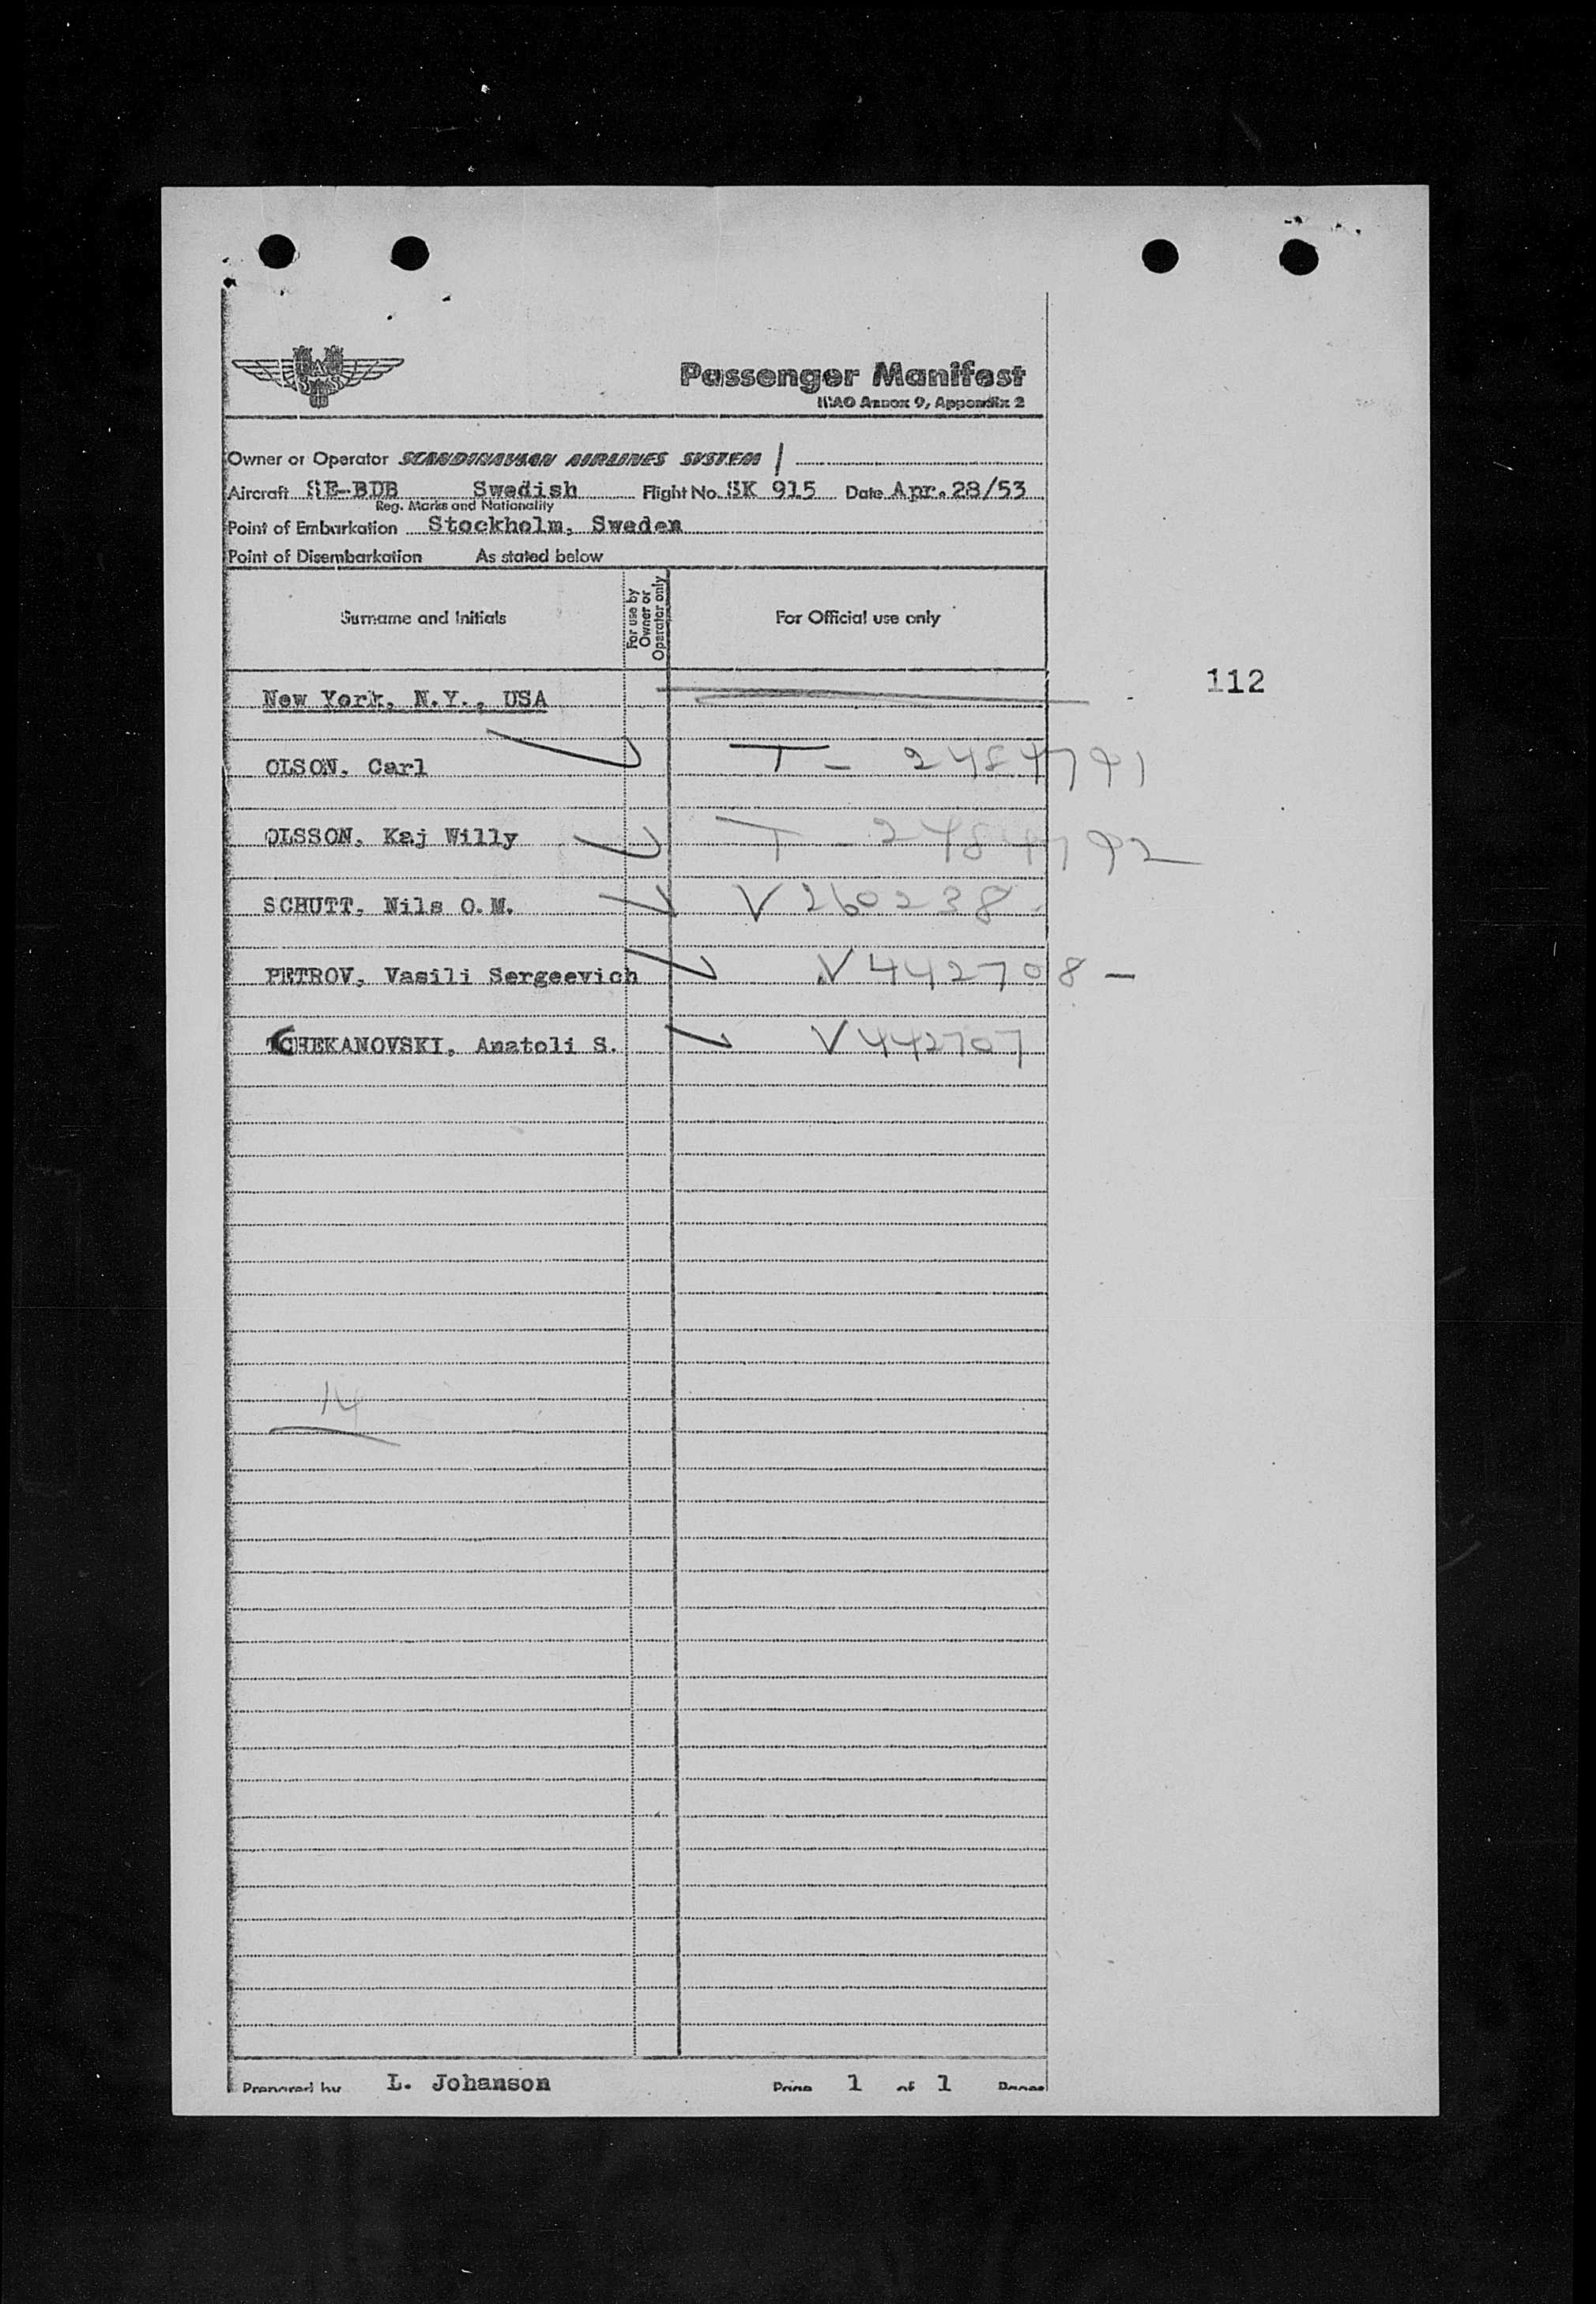 Passenger Manifest
ICAO Annex 9, Appendix 2
Owner or Operator SCANDINAVIAN AIRLINES SYSTEM
Aircraft SE-BDB Swedish Flight No. SK 915 Date Apr. 28/53
Reg. Marks and Nationality
Point of Embarkation Stockholm, Sweden
Point of Disembarkation As stated below
Surname and Initials For use by Owner or Operator only For Official use only
New York, N.Y., USA
112
OLSON, Carl T - 2484791
OLSSON, Kaj Willy T - 2484792
SCHUTT, Nils O.M. V 260238
PETROV, Vasili Sergeevich V 442708 -
TCHEKANOVSKI, Anatoli S. V 442707
14
Prepared by L. Johanson Page 1 of 1 Pages